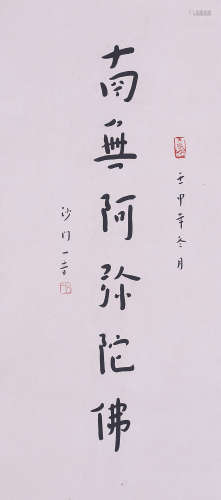 壬申年冬月
南無阿弥陀佛
沙门一音